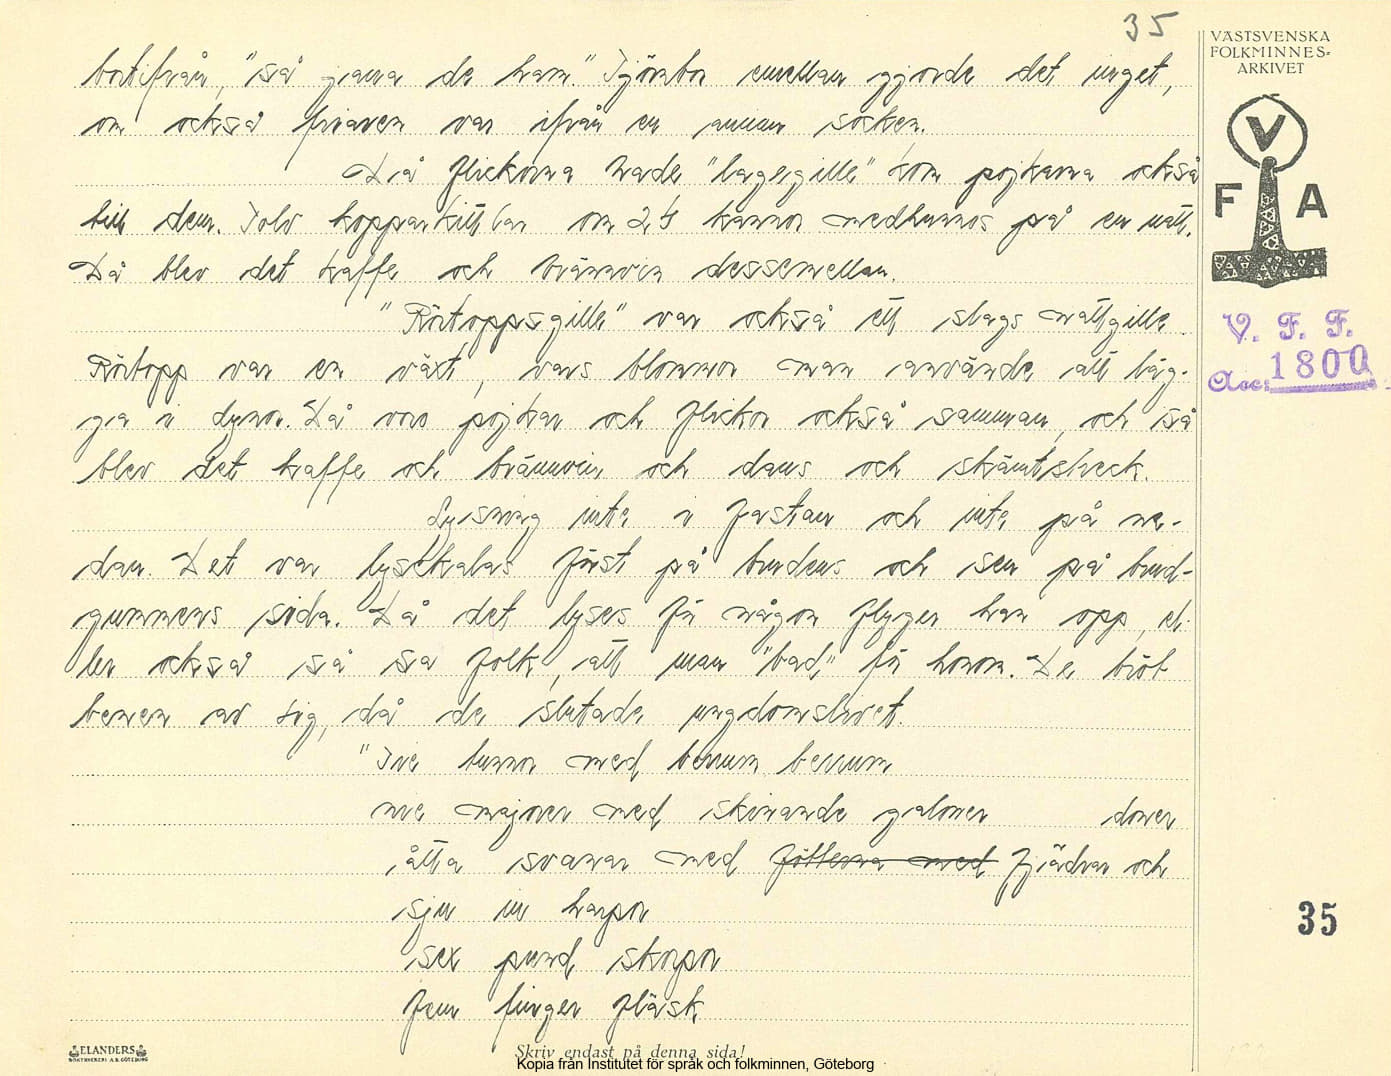 35
VÄSTSVENSKA
FOLKMINNES-
ARKIVET
V
F A
V. F. F.
Acc: 1800
bortifrån, "så gjava de ham." Tjörnbor emellan gjorde det inget,
om också friaren var ifrån en annan socken.
Då flickorna hade "bagegille" kom pojkarna också
till dem. Tolv kopparkittlar om 24 kannor medhunnos på en natt.
Då blev det kaffe och brännvin dessemellan.
"Rörtoppsgille" var också ett slags nattgille.
Rörtopp var en växt, vars blommor man använde att läg-
ga i dynor. Då voro pojkar och flickor också samman, och så
blev det kaffe och brännvin och dans och skämtsheck.
Lysning inte i fastan och inte på ne-
dan. Det var lysekalas först på brudens och sen på brud-
gummens sida. Då det lyses för någon flyger han opp, el-
ler också så sa folk, att man "bad" för honom. De bröt
benen av sig, då de slutade ungdomslivet.
"Tie tunnor med bennum bennum
nie majorer med skinande galoner
åtta svanar med fötterna med fjädrar och doner
sju ur harpor
sex pund skorpor
fem finger fläsk
35
ELANDERS
BOKTRYCKERI A.B. GÖTEBORG
Skriv endast på denna sida!
Kopia från Institutet för språk och folkminnen, Göteborg